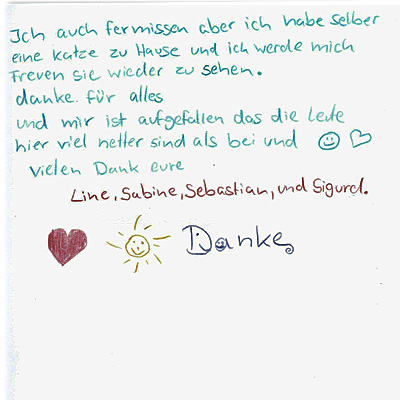 Ich auch fermissen aber ich habe selber
eine katze zu Hause und ich werde mich
Freuen sie wieder zu sehen.
danke für alles
und mir ist aufgefallen das die leute
hier viel netter sind als bei und
vielen Dank eure
Line, Sabine, Sebastian, und Sigurd.
Danke